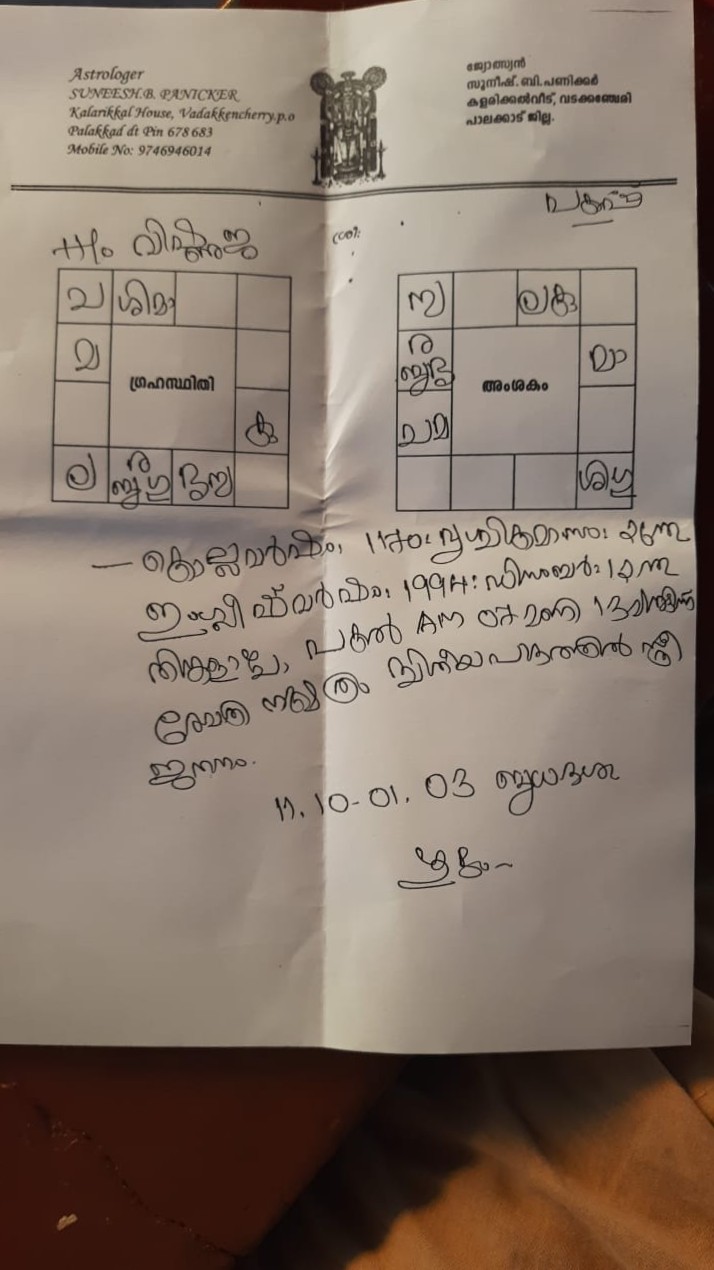 Astrologer
SUNEESH.B. PANICKER
Kalarikkal House, Vadakkencherry.p.o
Palakkad dt Pin 678 683
Mobile No: 9746946014
ജ്യോത്സ്യൻ
സുനീഷ്. ബി. പണിക്കർ
കളരിക്കൽവീട്, വടക്കഞ്ചേരി
പാലക്കാട് ജില്ല.
ശ്രീ:
ച ശിമാ
മ
ഗ്രഹസ്ഥിതി
കു
ല ര ബുഗു
സ്വ ലകു
ര
അംശകം
മാ
ചമ
ശിഗു
കൊല്ലവർഷം, 1170: വൃശ്ചികമാസം:
ഇംഗ്ലീഷ് വർഷം, 1994: ഡിസംബർ: 12 ന
തിങ്കളാഴ്ച, പകൽ 07 മണി 13
രേവതി നക്ഷത്രം ദ്വിതീയപാദത്തിൽ സ്ത്രീ
ജനനം.
11. 10-01. 03 ബുധദശ
ശുഭം-